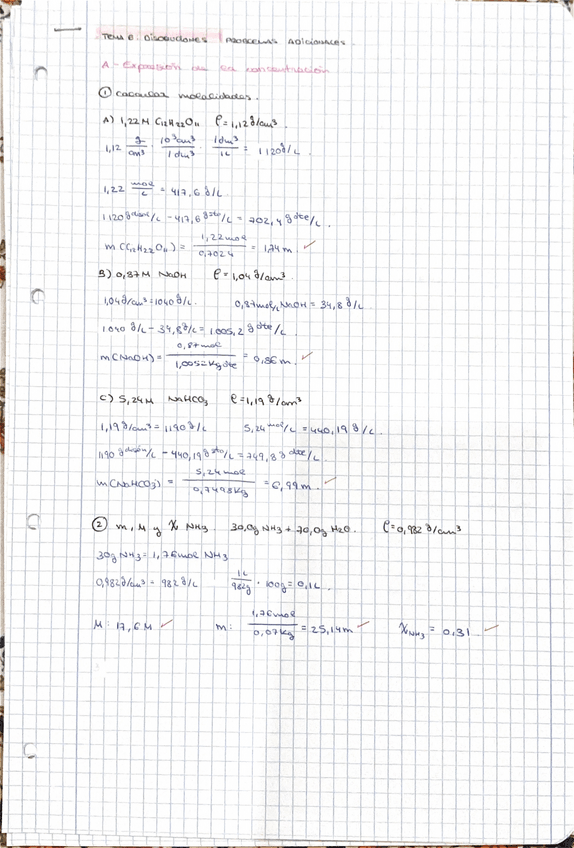 TEMA 6: DISOLUCIONES PROBLEMAS ADICIONALES.
A - Expresión de la concentración
① Calcular molalidades.
A) 1,22 M C12H22O11 ρ = 1,12 g/cm³
1,12 g/cm³ · 10³cm³/1dm³ · 1dm³/1L = 1120 g/L.
1,22 mol/L = 417,6 g/L
1120 g disol/L - 417,6 g sto/L = 702,4 g dte/L.
m (C12H22O11) = 1,22mol/0,7024 = 1,74 m. ✓
B) 0,87 M NaOH ρ = 1,04 g/cm³
1,04 g/cm³ = 1040 g/L. 0,87 mol/L NaOH = 34,8 g/L
1040 g/L - 34,8 g/L = 1005,2 g dte/L
m (NaOH) = 0,87mol/1,0052 Kg dte = 0,86 m. ✓
C) 5,24 M NaHCO3 ρ = 1,19 g/cm³
1,19 g/cm³ = 1190 g/L 5,24 mol/L = 440,19 g/L.
1190 g disoln/L - 440,19 g sto/L = 749,8 g dte/L.
m (NaHCO3) = 5,24 mol/0,7498 Kg = 6,99 m. ✓
② m, M y χ NH3. 30,0g NH3 + 70,0g H2O. ρ = 0,982 g/cm³
30g NH3 = 1,76 mol NH3
0,982 g/cm³ = 982 g/L 1L/982g · 100g = 0,1L.
M: 17,6 M ✓ m: 1,76mol/0,07Kg = 25,14 m ✓ χNH3 = 0,31 ✓